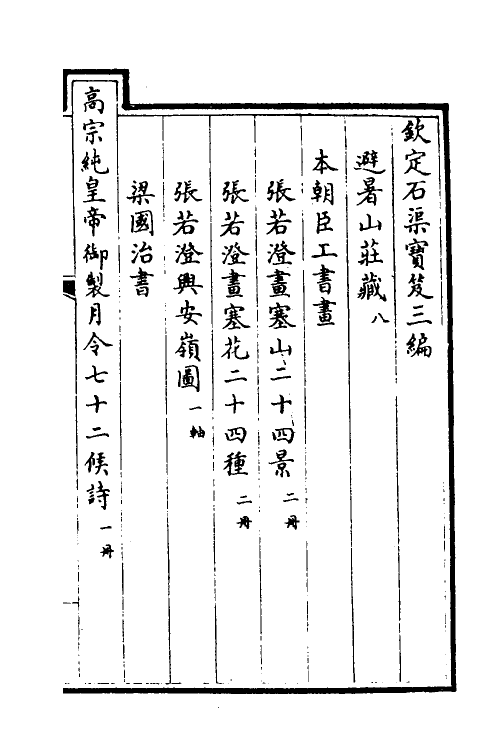 欽定石渠寶笈三編
避暑山莊藏八
本朝臣工書畫
張若澄畫塞山二十四景二冊
張若澄畫塞花二十四種二冊
張若澄興安嶺圖一軸
梁國治書
高宗純皇帝御製月令七十二候詩一冊